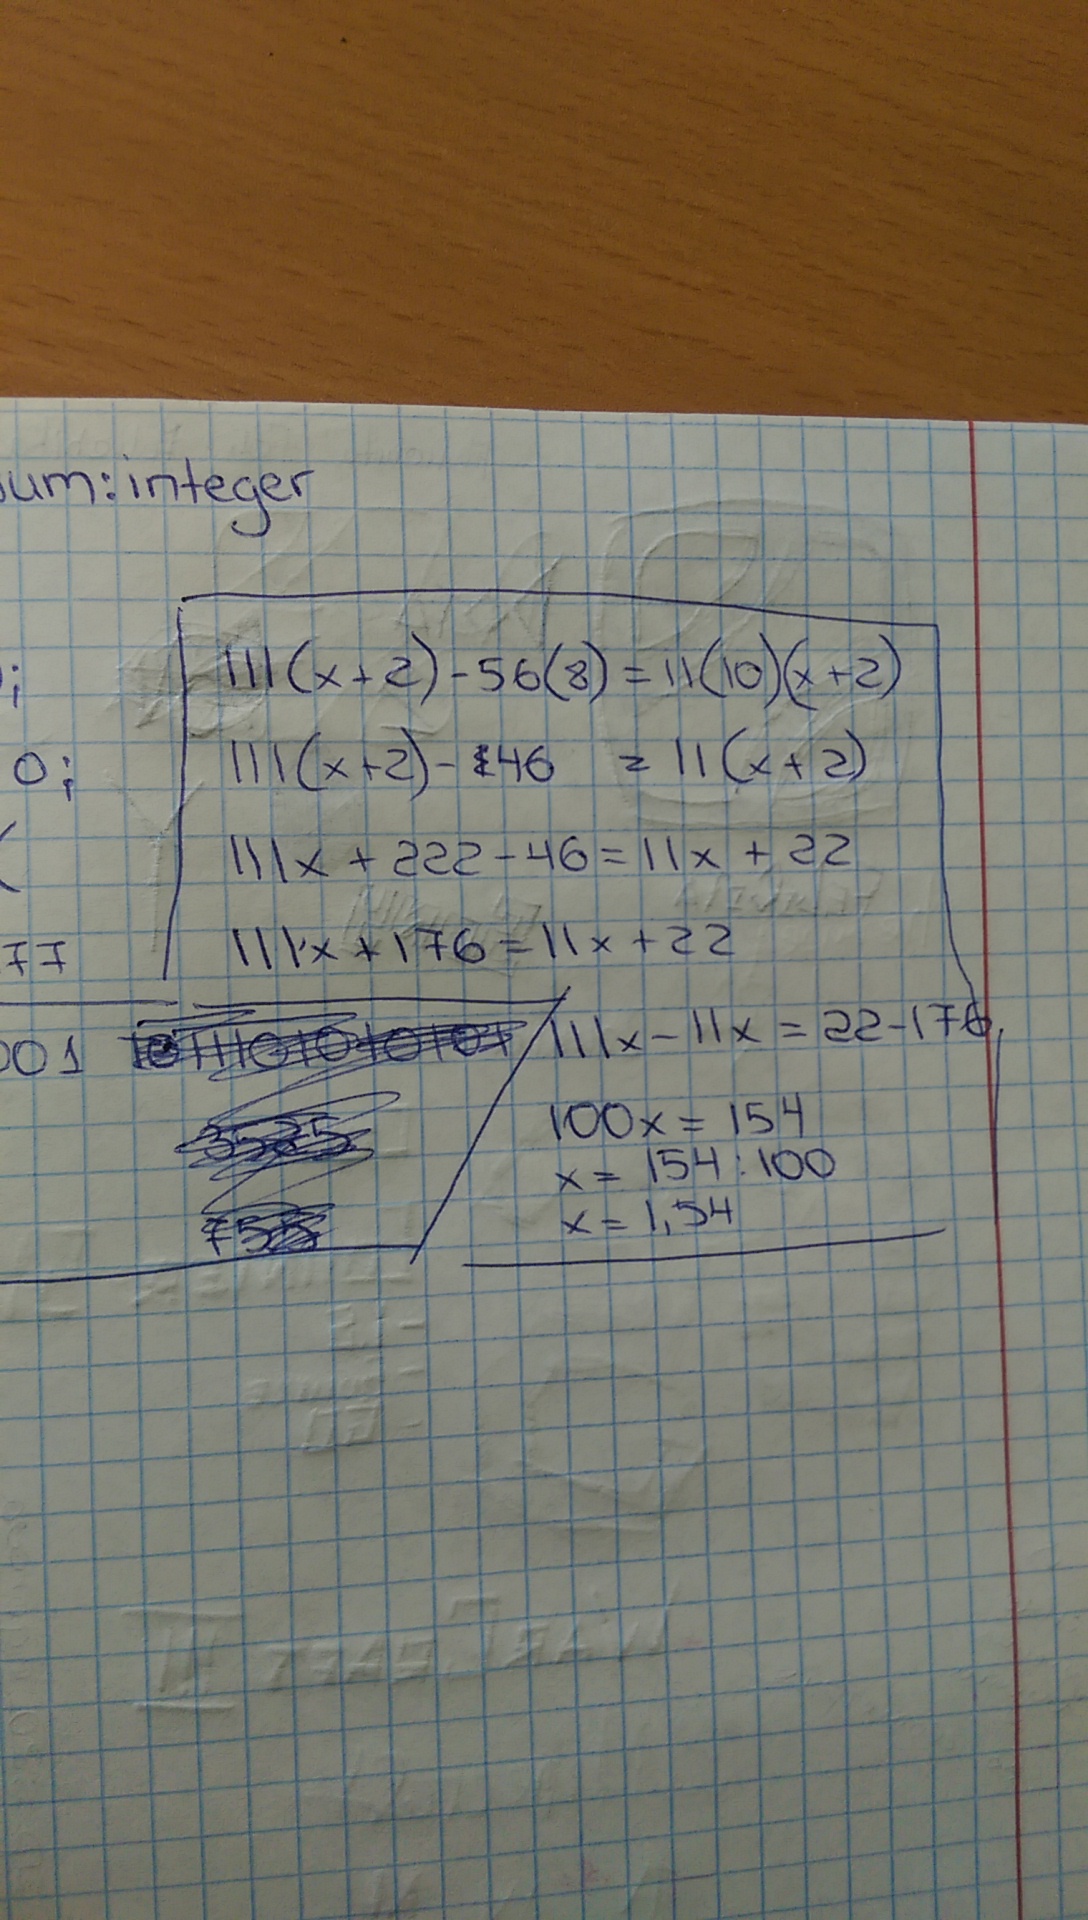 sum:integer
;
111(x+2)-56(8)=11(10)(x+2)
0;
111(x+2)-46 = 11(x+2)
111x+222-46=11x+22
77
111x+176=11x+22
001
111x-11x=22-176
100x=154
x=154:100
x=1,54